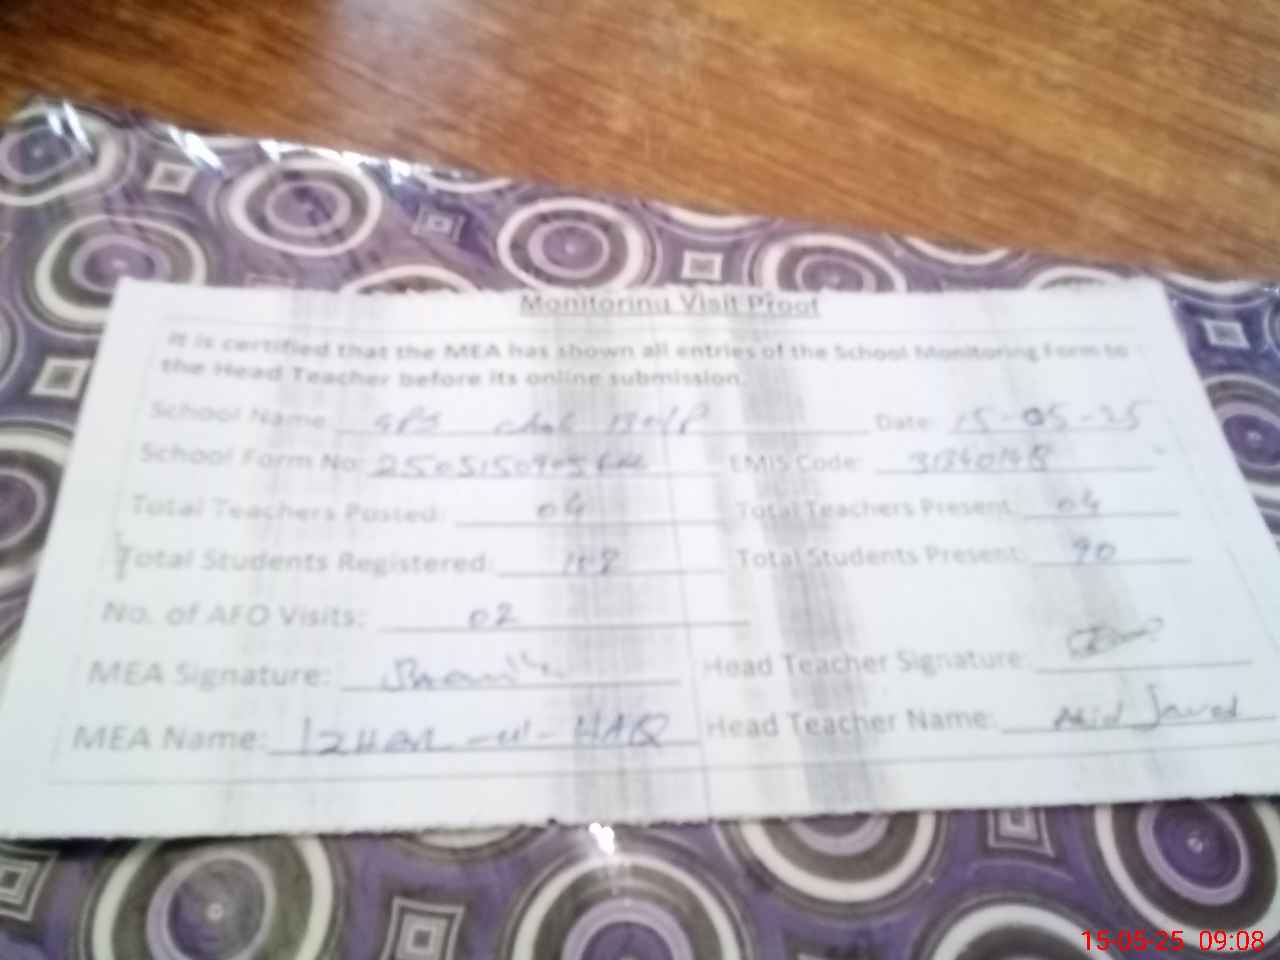 Monitoring Visit Proof
It is certified that the MEA has shown all entries of the School Monitoring Form to
the Head Teacher before its online submission.
School Name: GPS Chak Date: 15-05-25
School Form No: EMIS Code:
Total Teachers Posted: 04 Total Teachers Present: 04
Total Students Registered: Total Students Present: 90
No. of AFO Visits: 02
MEA Signature: Head Teacher Signature:
MEA Name: IZHAR-ul-HAQ Head Teacher Name: Javed
15-05-25 09:08